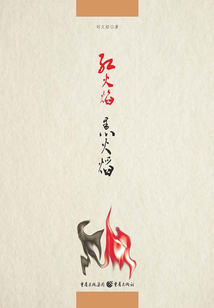 红火焰
黑火焰
重庆出版集团 重庆出版社